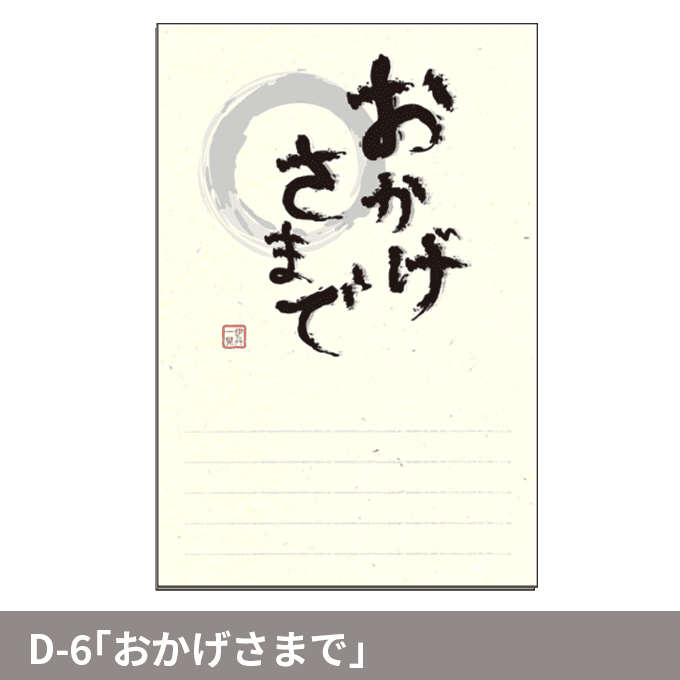 おかげ
さまで
D-6「おかげさまで」